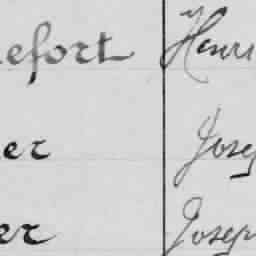 efort Henri
er Josep
er Joseph